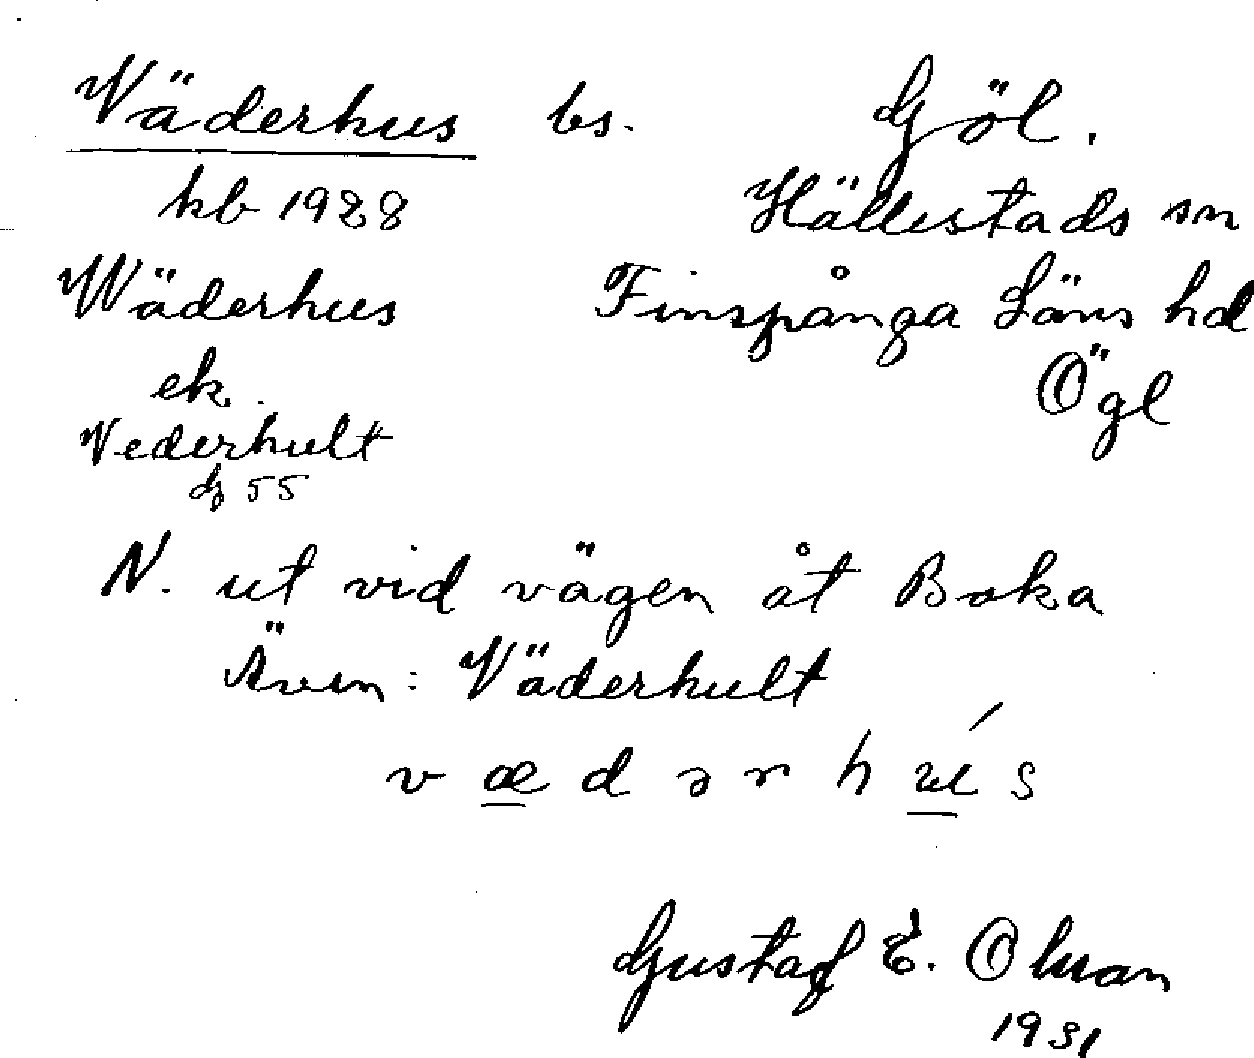 Väderhus bs. Göl.
kb 1928 Hällestads sn
Wäderhus Finspånga Läns hd
ek. Ögl
Vederhult
dj 55
N. ut vid vägen åt Boka
Även: Väderhult
v æ d ə r h ú s
Gustaf E. Olson
1931